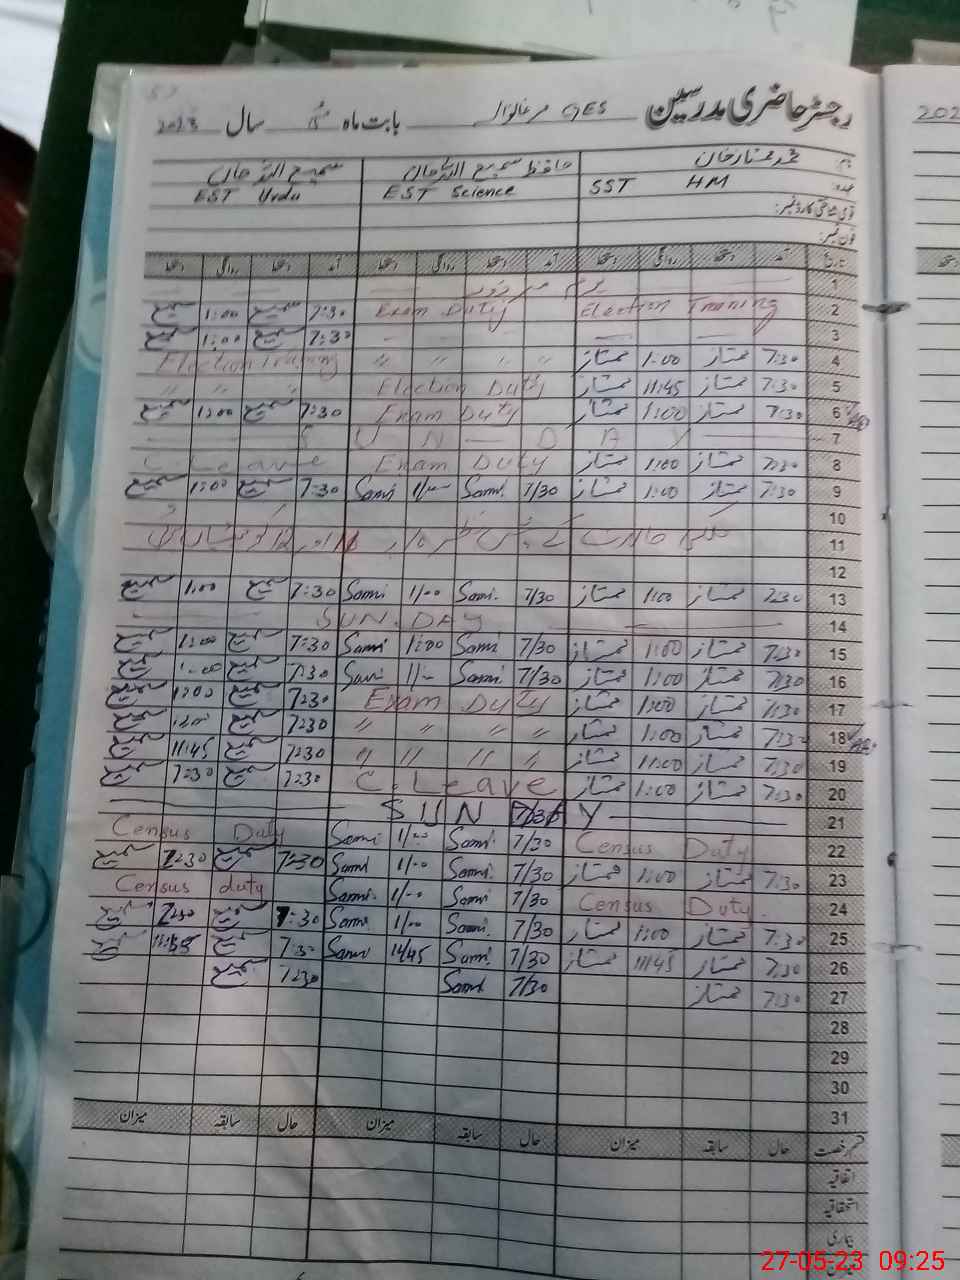 رجسٹر حاضری مدرسین GES مرغالوالہ بابت ماہ مئی سال 2023
نام: محمد ممتاز خان حافظ سمیع اللہ خان سمیع اللہ خان
عہدہ: SST HM EST Science EST Urdu
قومی شناختی کارڈ نمبر:
فون نمبر:
تاریخ آمد دستخط روانگی دستخط آمد دستخط روانگی دستخط آمد دستخط روانگی دستخط
1 یوم مزدور
2 Election Training Exam Duty 7:30 سمیع 1:00 سمیع
3 7:30 سمیع 1:00 سمیع
4 7:30 ممتاز 1:00 ممتاز " " " " Election Training
5 7:30 ممتاز 11:45 ممتاز Election Duty " " "
6 7:30 ممتاز 1:00 ممتاز Exam Duty 7:30 سمیع 1:00 سمیع
7 S U N D A Y
8 7:30 ممتاز 1:00 ممتاز Exam Duty C. Leave
9 7:30 ممتاز 1:00 ممتاز 7/30 Sami 1/00 Sami 7:30 سمیع 1:00 سمیع
10
11 ملکی حالات کے پیش نظر
12
13 7:30 ممتاز 1:00 ممتاز 7/30 Sami 1/00 Sami 7:30 سمیع 1:00 سمیع
14 SUN.DAY
15 7:30 ممتاز 1:00 ممتاز 7/30 Sami 1:00 Sami 7:30 سمیع 1:00 سمیع
16 7:30 ممتاز 1:00 ممتاز 7/30 Sami 1/- Sami 7:30 سمیع 1:00 سمیع
17 7:30 ممتاز 1:00 ممتاز Exam Duty 7:30 سمیع 1:00 سمیع
18 7:30 ممتاز 1:00 ممتاز " " " " 7:30 سمیع 1:00 سمیع
19 7:30 ممتاز 1:00 ممتاز " " " " 7:30 سمیع 11:45 سمیع
20 7:30 ممتاز 1:00 ممتاز C. Leave 7:30 سمیع 7:30 سمیع
21 S U N 7/30 Y
22 Census Duty 7/30 Sami 1/00 Sami Census Duty
23 7:30 ممتاز 1:00 ممتاز 7/30 Sami 1/00 Sami 7:30 سمیع 7:30 سمیع
24 Census Duty. 7/30 Sami 1/00 Sami Census duty
25 7:30 ممتاز 1:00 ممتاز 7/30 Sami 1/00 Sami 7:30 سمیع 7:30 سمیع
26 7:30 ممتاز 11:45 ممتاز 7/30 Sami 11/45 Sami 7:30 سمیع 11:45 سمیع
27 7:30 ممتاز 7/30 Sami 7:30 سمیع
28
29
30
31
قسم رخصت حال سابقہ میزان حال سابقہ میزان حال سابقہ میزان
اتفاقیہ
استحقاقیہ
بیماری
27-05-23 09:25